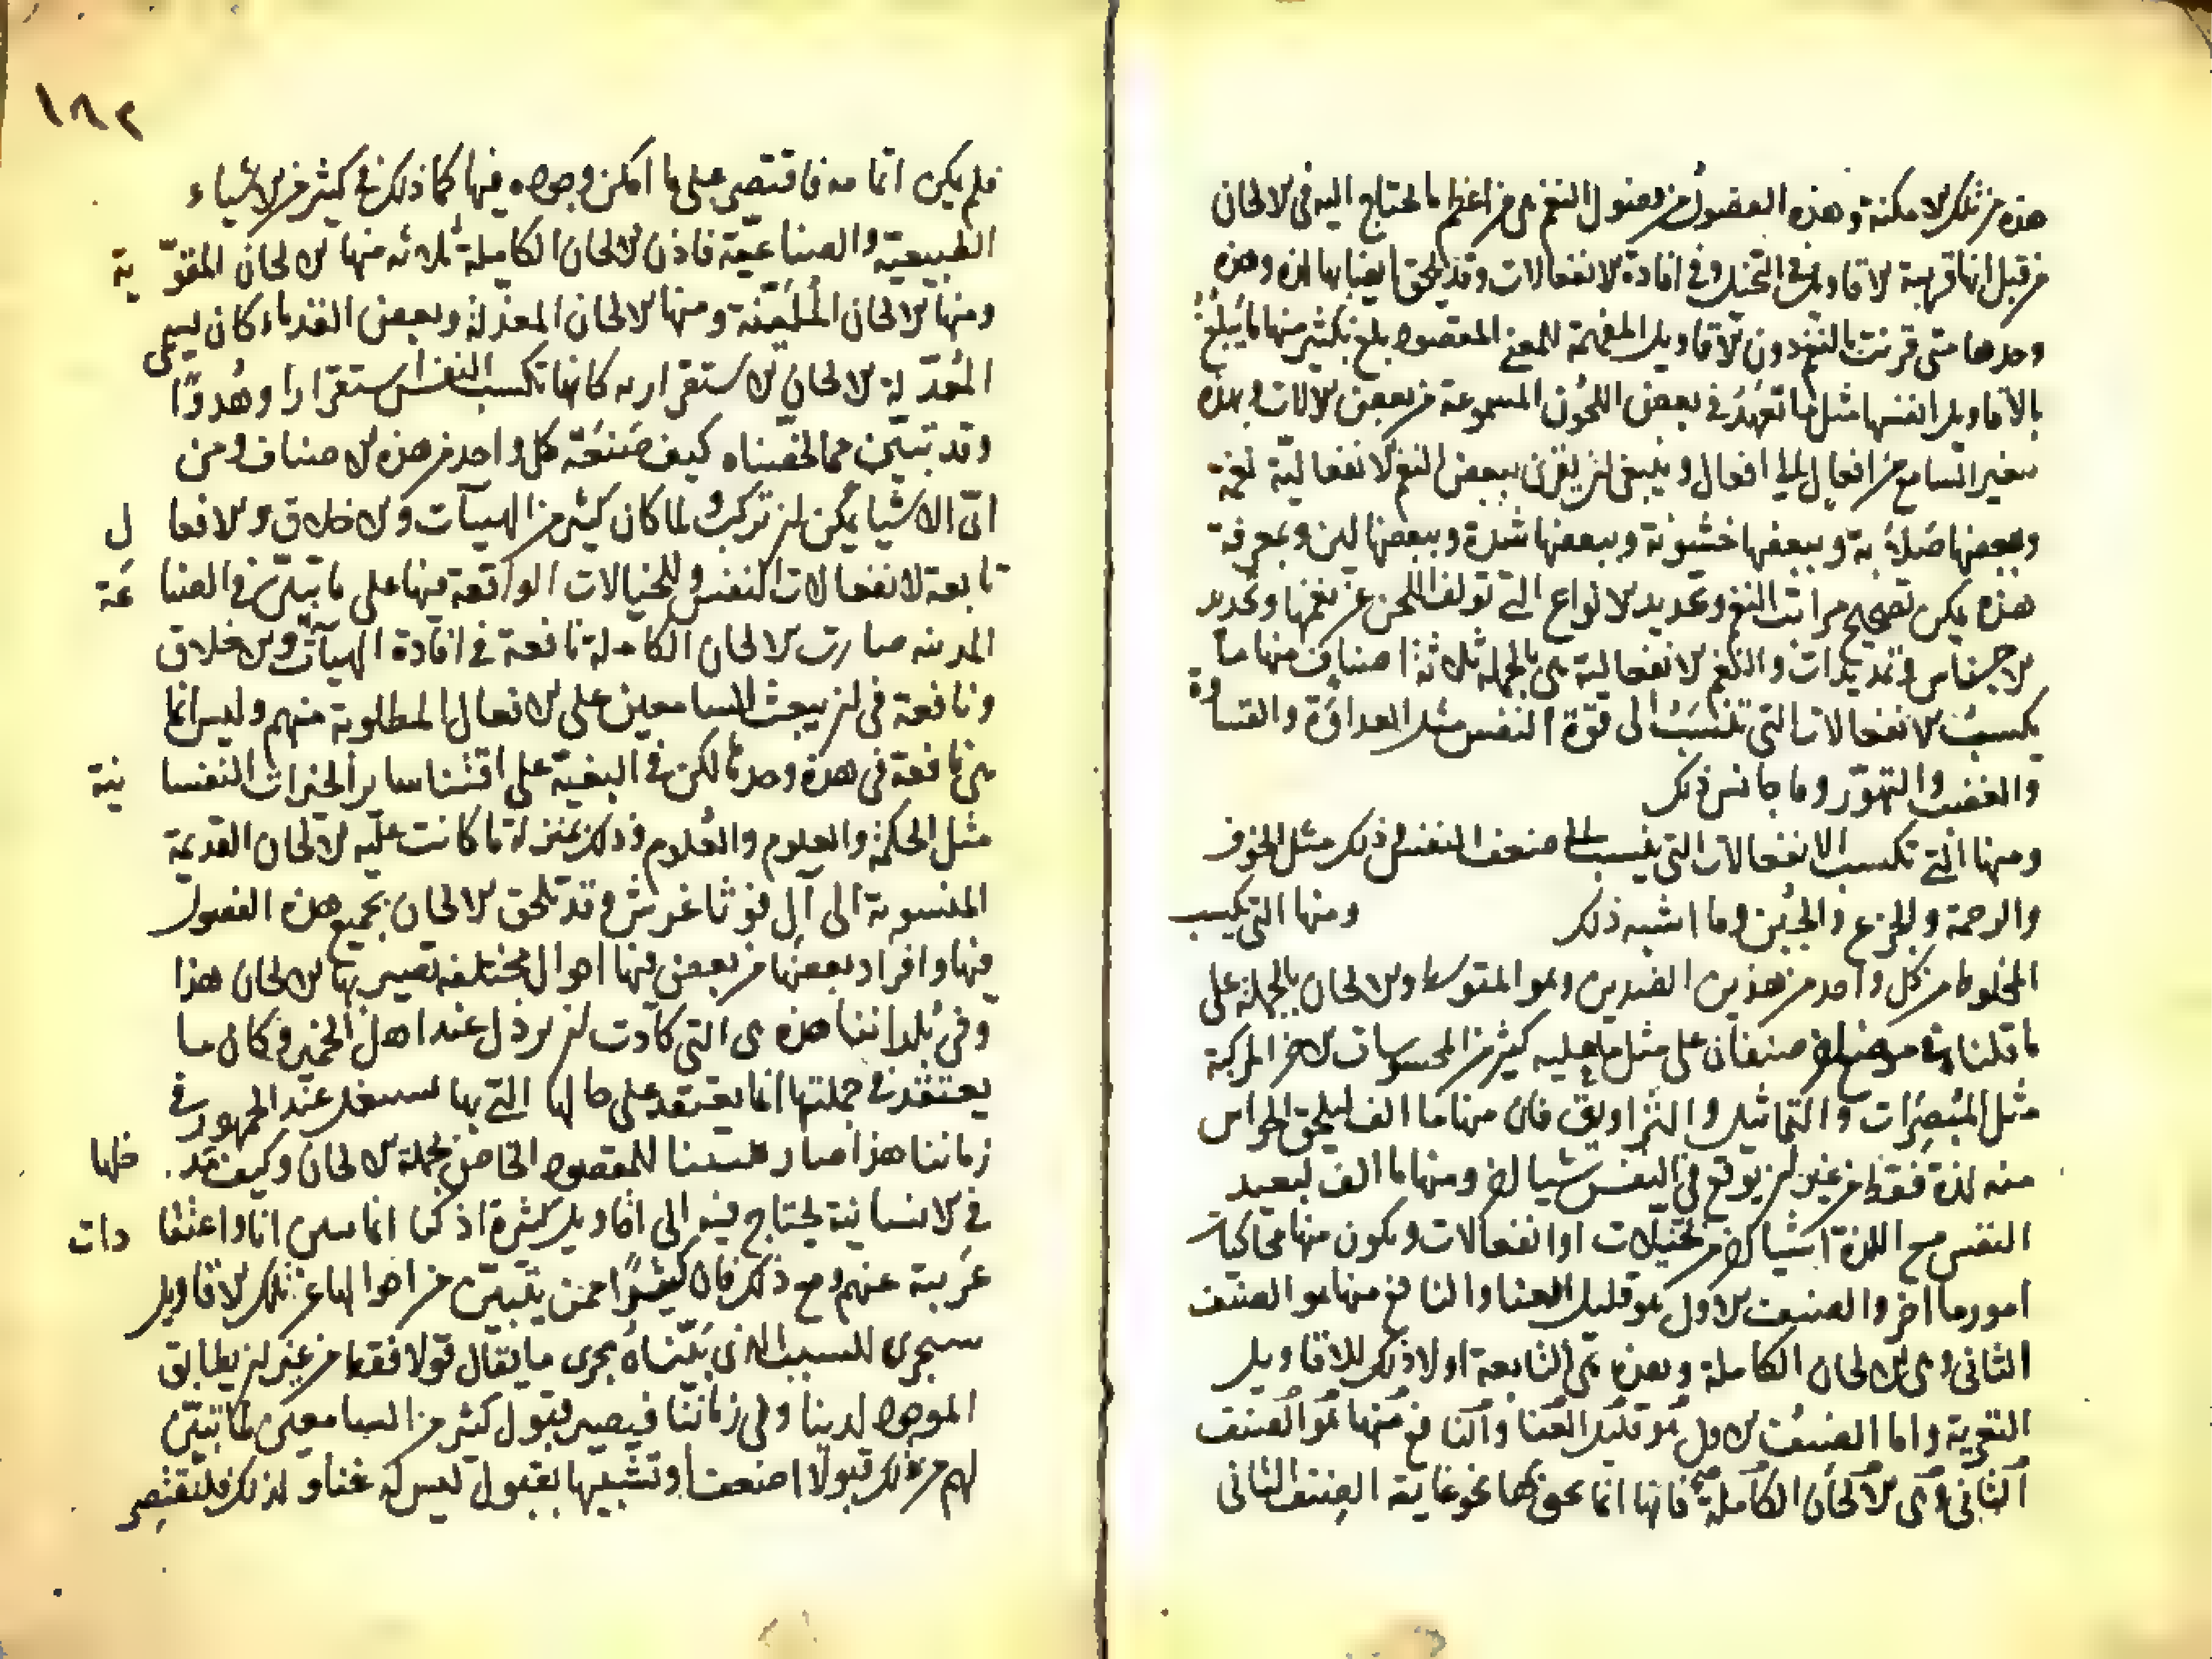 هذه من تلك الامكنة وهذه الفصول من فصول النغم هي من اعظم ما يحتاج اليه في الالحان
من قبل انها قريبة الاقاويل في التخييل وفي افادة الانفعالات وقد يلحق ايضا بها لذة وهذه
وحدها متى قرنت بالنغم دون الاقاويل المفهمة للمعنى المقصود بلغ بكثير منها ما يبلغ
بالاقاويل انفسها مثل ما نعهد في بعض اللحون المسموعة من بعض الالات وبهذه
يتغير السامع من افعال الى افعال وينبغي ان يقرن ببعض النغم الانفعالية نعمة
وبعضها صلابة وببعضها خشونة وببعضها شدة وببعضها لين وبمعرفة
هذه يمكن تصحيح مراتب النغم وتحديد الانواع التي تولف اللحن عن نغمها وتحديد
الاجناس وتمديدات والنغم الانفعالية هي بالجملة ثلاثة اصناف منها ما
يكسب الانفعالات التي تنسب الى قوة النفس مثل العداوة والقساوة
والغضب والتهور وما جانس ذلك
ومنها التي تكسب الانفعالات التي ينسب الى ضعف النفس وذلك مثل الخوف
والرحمة والجزع والجبن وما اشبه ذلك ومنها التي تكسب
المخلوط من كل واحد من هذين الضدين وهو المتوسط والالحان بالجملة على
ما قلنا في موضع اخر صنفان على مثل ما عليه كثير من المحسوسات الاخر المركبة
مثل المبصرات والتماثيل والتزاويق فان منها ما الف ليلحق الحواس
منه لذة فقط من غير ان يوقع في النفس شيا اخر ومنها ما الف ليفيد
النفس مع اللذة اشيا اخر من تخيلات او انفعالات ويكون منها محاكيات
امور ما اخر والصنف الاول هو قليل الغنا والنافع منها هو الصنف
الثاني وهي الالحان الكاملة وهذه هي التابعة اولا ذلك للاقاويل
الشعرية واما الصنف الاول هو قليل الغنا والنافع منها هو الصنف
الثاني وهي الالحان الكاملة فانها انما نحوي بها نحو غاية الصنف الثاني
١٨٢
فلم يكن اتمامه فاقتصر على ما امكن وجوده فيها كما ذلك في كثير من الاشياء
الطبيعية والصناعية فاذن الالحان الكاملة ثلاثه منها الالحان المقوية
ومنها الالحان الملينة ومنها الالحان المعدلة وبعض القدماء كان يسمى
المعدلة الالحان الاستقرارية كانها تكسب النفس استقرارا وهدوا
وقد تبين مما لخصناه كيف صنعة كل واحد من هذه الاصناف ومن
اي الاشيا يمكن ان تركب ولما كان كثير من الهيآت والاخلاق والافعال
تابعة لانفعالات النفس وللخيالات الواقعة فيها على ما تبين في الصناعة
المدنيه صارت الالحان الكاملة نافعة في افادة الهيآت والاخلاق
ونافعة في ان يبعث السامعين على الافعال المطلوبة منهم وليس انما
هي نافعة في هذه وحدها لكن في البغية على اقتنا ساير الخيرات النفسانية
مثل الحكمة والعلوم والعلوم وذلك بمنزلة ما كانت عليه الالحان القديمة
المنسوبة الى آل فوثاغورش وقد تلحق الالحان بجميع هذه الفصول
فيها وافراد بعضها من بعض فيها احوال مختلفة تصير بها الالحان هذا
وفي بلداننا هذه هي التي كادت ان يرذل عند اهل الخير وكان ما
يعتقد في جملتها انما يعتقد على حالها التي بها تستعمل عند الجمهور في
زماننا هذا صار المقصود الخاص بجملة الالحان وكيف قد خلها
في الانسانية يحتاج فيه الى اقاويل كثيرة اذ كنا انما اعتقادات
غريبة عنهم ومع ذلك فان كثيرا ممن يتبين من احوالها عن تلك الاقاويل
سيجرى للسبب الذي بيناه مجرى ما يقال قولا فقط من غير ان يطابق
الموجود لدينا وفي زماننا فيصير قبول كثير من السامعين لما تبين
لهم من ذلك قبولا اضعف او تشبيها بقبول ليس له غناو لذلك فلنقتصر